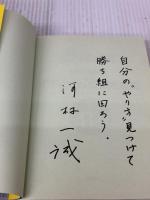 自分の“やり方”見つけて
勝ち組に回ろう。
河林一誠